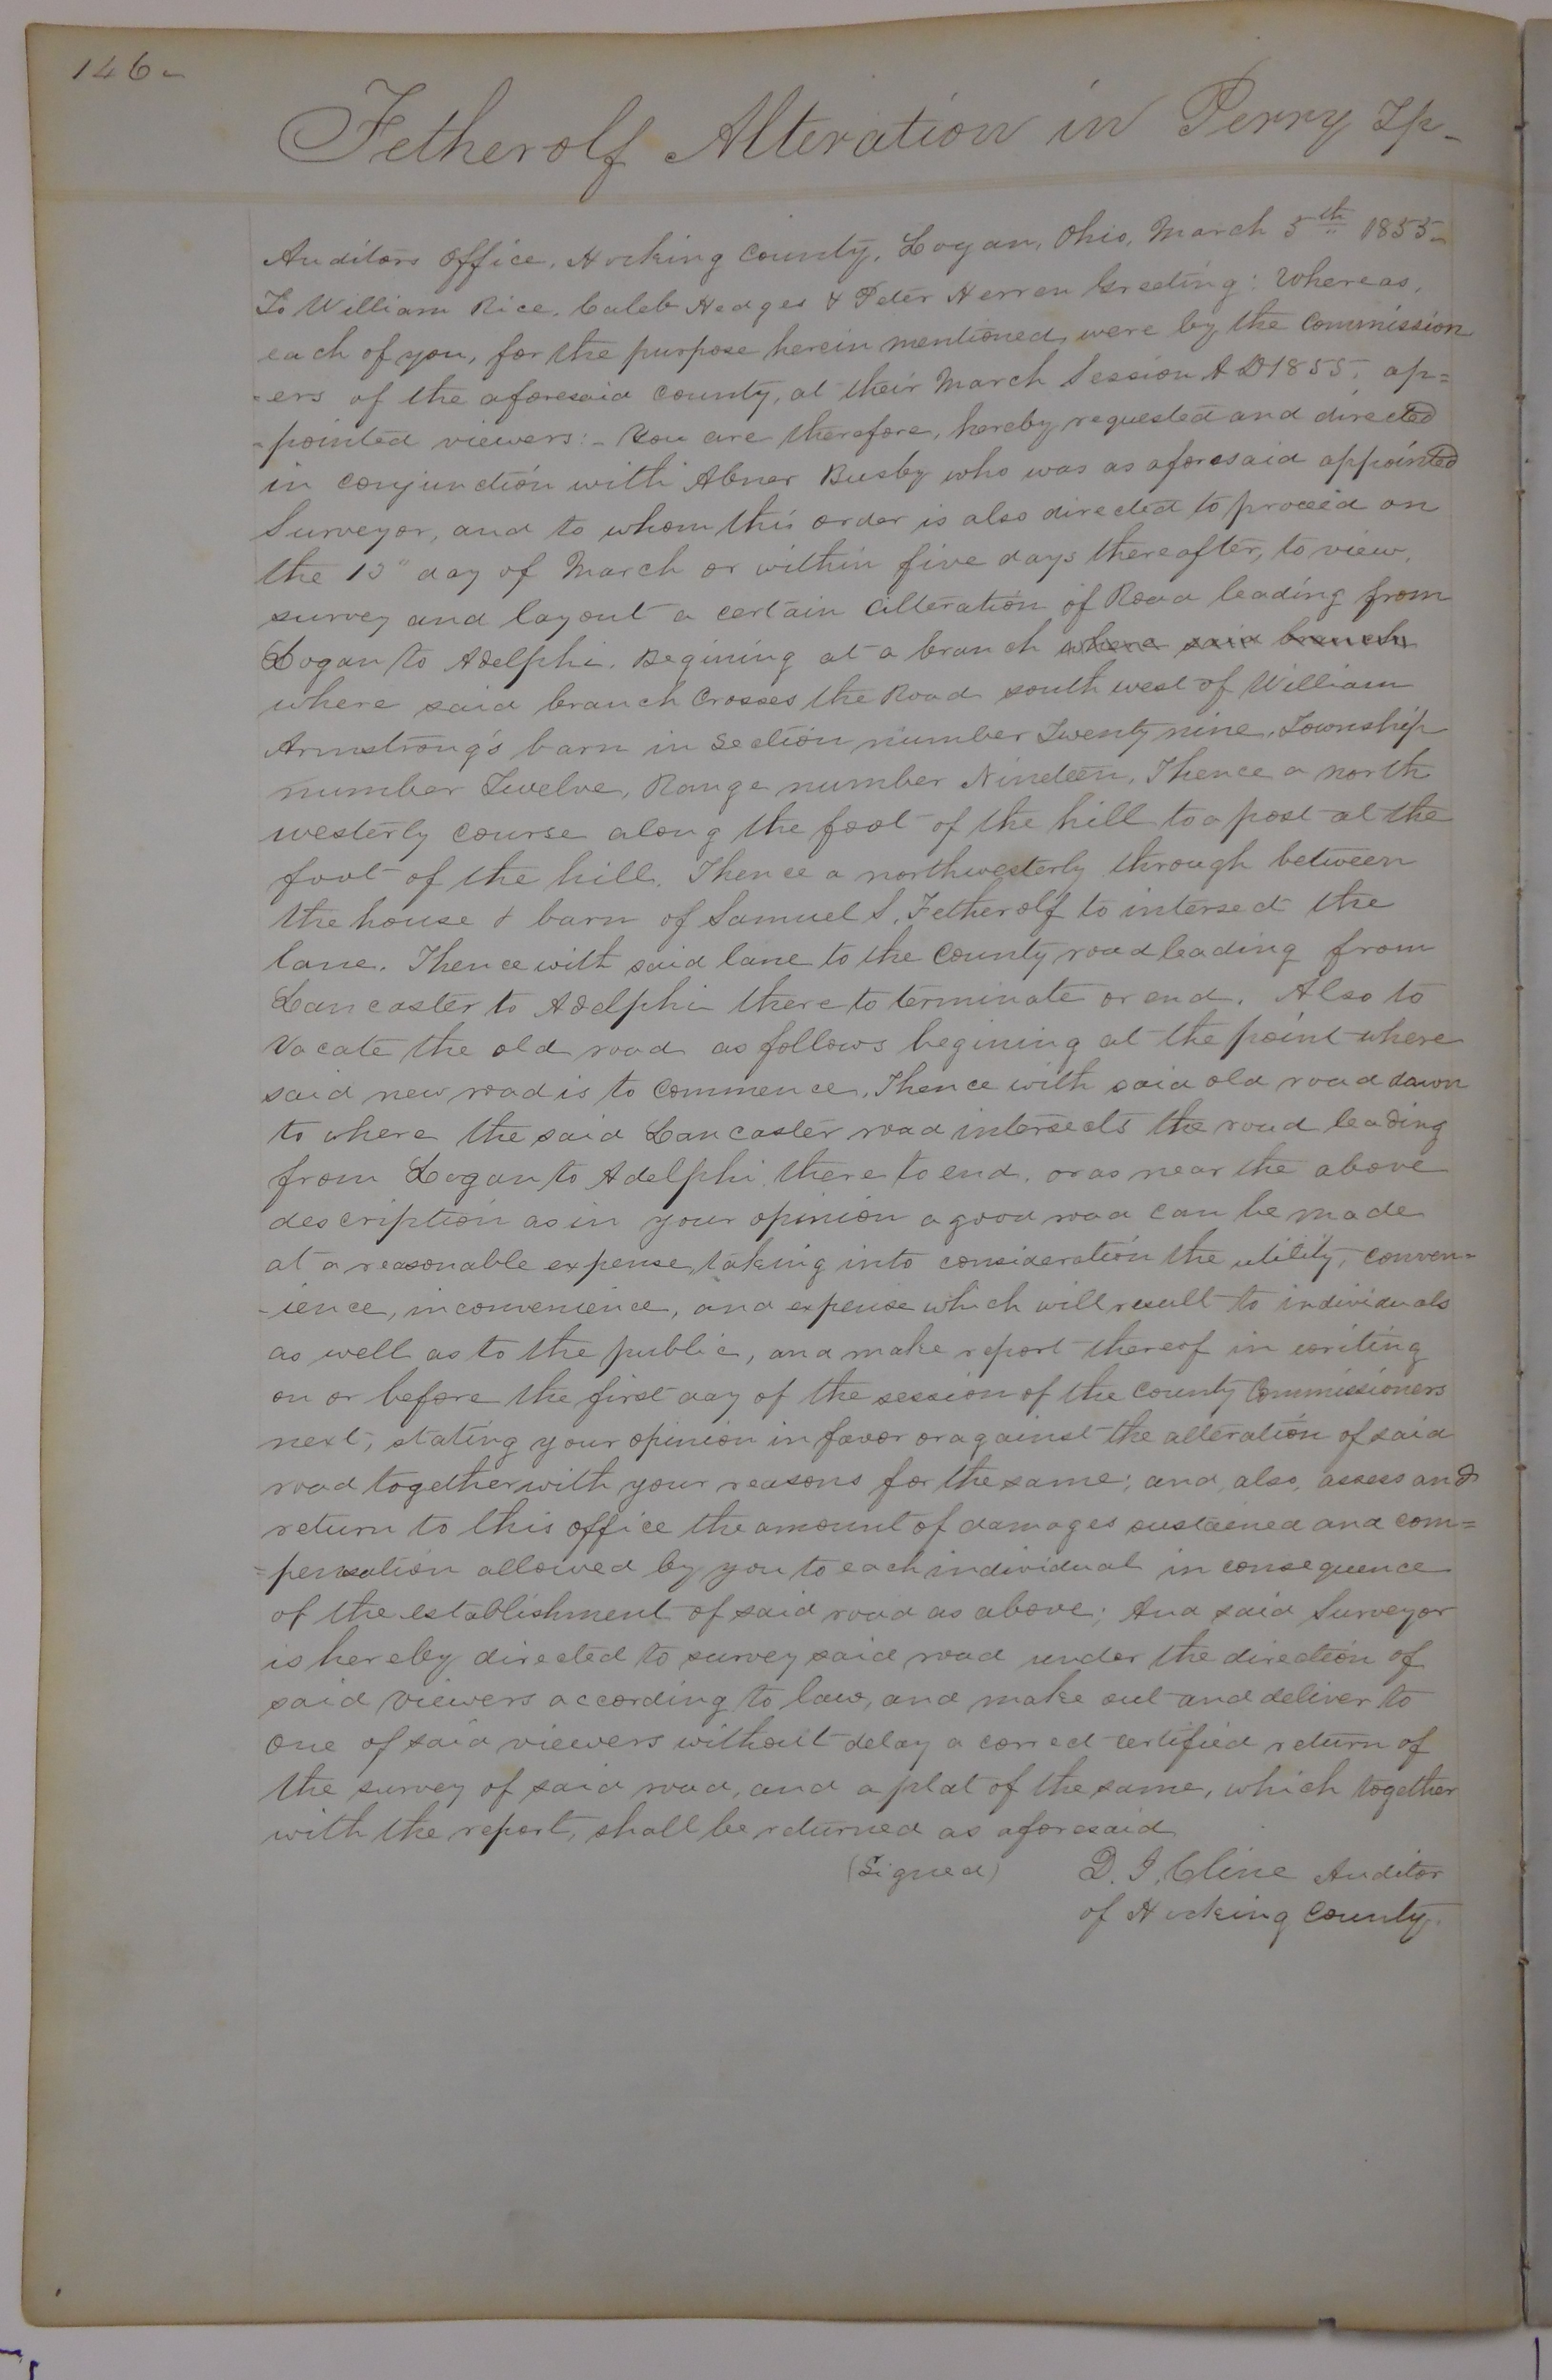 146-
Fetherolf Alteration in Perry Tp-
Auditors Office, Hocking County, Logan, Ohio, March 5th 1855-
To William Rice, Caleb Hedges & Peter Herren Greeting: Whereas,
each of you, for the purpose herein mentioned, were by the Commission
-ers of the aforesaid County, at their March Session A D 1855, ap=
-pointed viewers:- You are therefore, hereby requested and directed
in conjunction with Abner Busby who was as aforesaid appointed
Surveyor, and to whom this order is also directed to proceed on
the 13" day of March or within five days thereafter, to view,
survey and layout a certain alteration of Road leading from
Logan to Adelphi. Begining at a branch where said branch
where said branch Crosses the Road south west of William
Armstrong's barn in Section number Twenty nine, Township
number Twelve, Range number Nineteen, Thence a north
westerly course along the foot of the hill to a post at the
foot of the hill. Thence a northwesterly through between
the house & barn of Samuel S. Fetherolf to intersect the
lane. Thence with said lane to the County road leading from
Lancaster to Adelphi there to terminate or end. Also to
Vacate the old road as follows begining at the point where
said new road is to Commence, Thence with said old road down
to where the said Lancaster road intersects the road leading
from Logan to Adelphi there to end, or as near the above
description as in your opinion a good road can be made
at a reasonable expense, taking into consideration the utility, conven-
-ience, inconvenience, and expense which will result to individuals
as well as to the public, and make report thereof in writing
on or before the first day of the session of the County Commissioners
next, stating your opinion in favor or against the alteration of said
road together with your reasons for the same; and, also, assess and
return to this office the amount of damages sustained and com=
=pensation allowed by you to each individual in consequence
of the establishment of said road as above; And said Surveyor
is hereby directed to survey said road under the direction of
said viewers according to law, and make out and deliver to
one of said viewers without delay a correct certified return of
the survey of said road, and a plat of the same, which together
with the report, shall be returned as aforesaid
(Signed) D. I. Cline Auditor
of Hocking County.